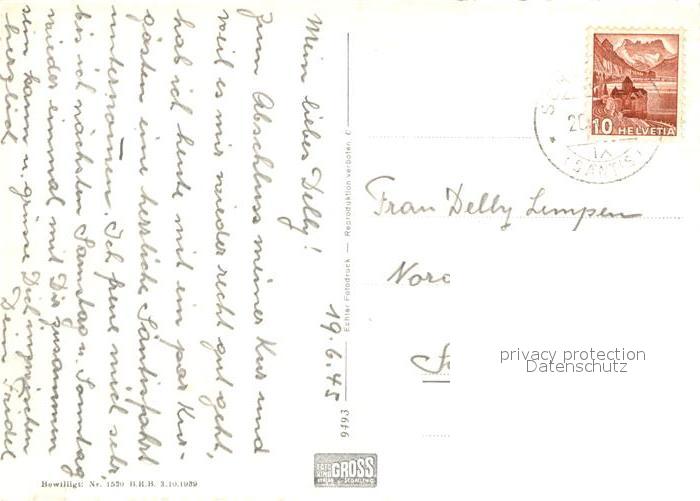 Mein liebes Delly!
Zum Abschluss meiner Kur und
weil es mir wieder recht gut geht,
hab ich heute mit ein paar Kur-
gästen eine herrliche Säntisfahrt
unternommen. Ich freue mich sehr,
bis ich nächsten Samstag u. Sonntag
wieder einmal mit Dir zusammen
sein kann u. grüsse Dich inzwischen
herzlich
Dein Friedel
19.6.45
9493 — Echter Fotodruck — Reproduktion verboten
Bewilligt: Nr. 1520 B.R.B. 3.10.1939
FOTO
GROSS
10 HELVETIA
(SÄNTIS)
Frau Delly Lempen
Nord
privacy protection
Datenschutz